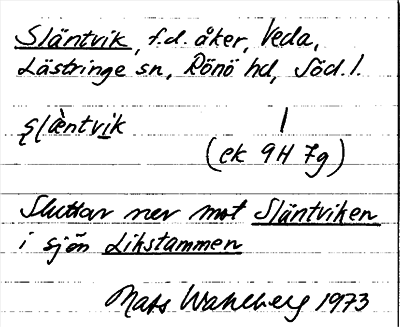 Släntvik, f.d. åker, Veda,
Lästringe sn, Rönö hd, Söd. l.
şlæ̀ntvi̲k /
(ek 9H 7g)
Sluttar ner mot Släntviken
i sjön Likstammen
Mats Wahlberg 1973